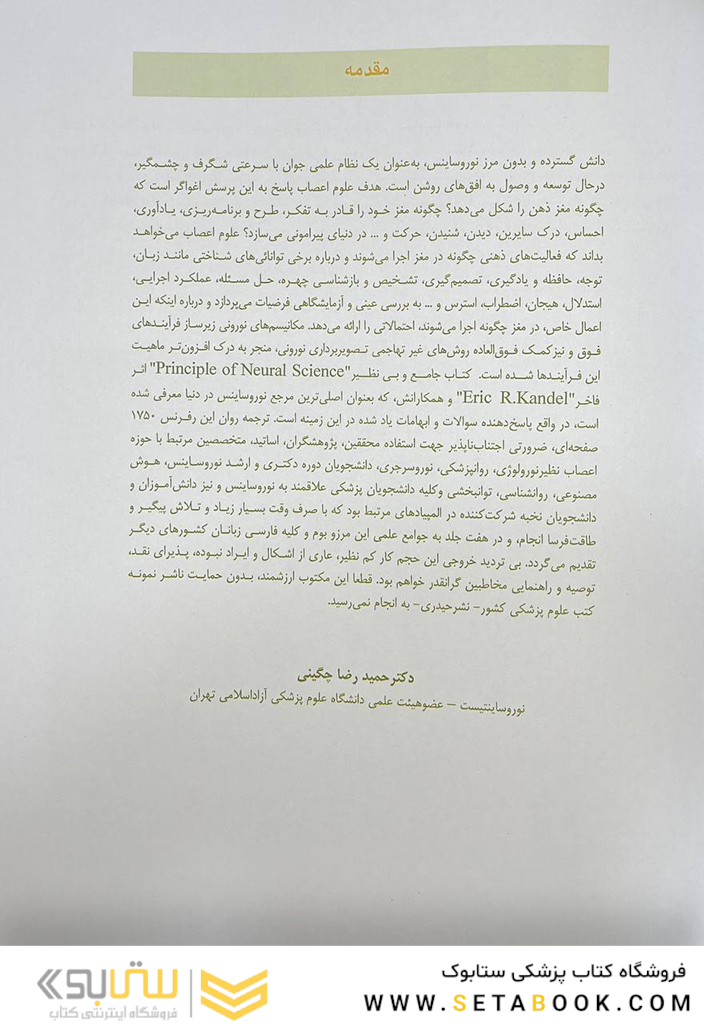 مقدمه
دانش گسترده و بدون مرز نوروساینس، به‌عنوان یک نظام علمی جوان با سرعتی شگرف و چشمگیر،
درحال توسعه و وصول به افق‌های روشن است. هدف علوم اعصاب پاسخ به این پرسش اغواگر است که
چگونه مغز ذهن را شکل می‌دهد؟ چگونه مغز خود را قادر به تفکر، طرح و برنامه‌ریزی، یادآوری،
احساس، درک سایرین، دیدن، شنیدن، حرکت و ... در دنیای پیرامونی می‌سازد؟ علوم اعصاب می‌خواهد
بداند که فعالیت‌های ذهنی چگونه در مغز اجرا می‌شوند و درباره برخی توانائی‌های شناختی مانند زبان،
توجه، حافظه و یادگیری، تصمیم‌گیری، تشخیص و بازشناسی چهره، حل مسئله، عملکرد اجرایی،
استدلال، هیجان، اضطراب، استرس و ... به بررسی عینی و آزمایشگاهی فرضیات می‌پردازد و درباره اینکه این
اعمال خاص، در مغز چگونه اجرا می‌شوند، احتمالاتی را ارائه می‌دهد. مکانیسم‌های نورونی زیرساز فرآیندهای
فوق و نیز کمک فوق‌العاده روش‌های غیر تهاجمی تصویربرداری نورونی، منجر به درک افزون‌تر ماهیت
این فرآیندها شده است. کتاب جامع و بی نظیر "Principle of Neural Science" اثر
فاخر "Eric R.Kandel" و همکارانش، که بعنوان اصلی‌ترین مرجع نوروساینس در دنیا معرفی شده
است، در واقع پاسخ‌دهنده سوالات و ابهامات یاد شده در این زمینه است. ترجمه روان این رفرنس ۱۷۵۰
صفحه‌ای، ضرورتی اجتناب‌ناپذیر جهت استفاده محققین، پژوهشگران، اساتید، متخصصین مرتبط با حوزه
اعصاب نظیرنورولوژی، روانپزشکی، نوروسرجری، دانشجویان دوره دکتری و ارشد نوروساینس، هوش
مصنوعی، روانشناسی، توانبخشی وکلیه دانشجویان پزشکی علاقمند به نوروساینس و نیز دانش‌آموزان و
دانشجویان نخبه شرکت‌کننده در المپیادهای مرتبط بود که با صرف وقت بسیار زیاد و تلاش پیگیر و
طاقت‌فرسا انجام، و در هفت جلد به جوامع علمی این مرزو بوم و کلیه فارسی زبانان کشورهای دیگر
تقدیم می‌گردد. بی تردید خروجی این حجم کار کم نظیر، عاری از اشکال و ایراد نبوده، پذیرای نقد،
توصیه و راهنمایی مخاطبین گرانقدر خواهم بود. قطعا این مکتوب ارزشمند، بدون حمایت ناشر نمونه
کتب علوم پزشکی کشور- نشرحیدری- به انجام نمی‌رسید.
دکترحمید رضا چگینی
نوروساینتیست – عضوهیئت علمی دانشگاه علوم پزشکی آزاداسلامی تهران
فروشگاه کتاب پزشکی ستابوک
WWW.SETABOOK.COM
ستابوک
فروشگاه اینترنتی کتاب